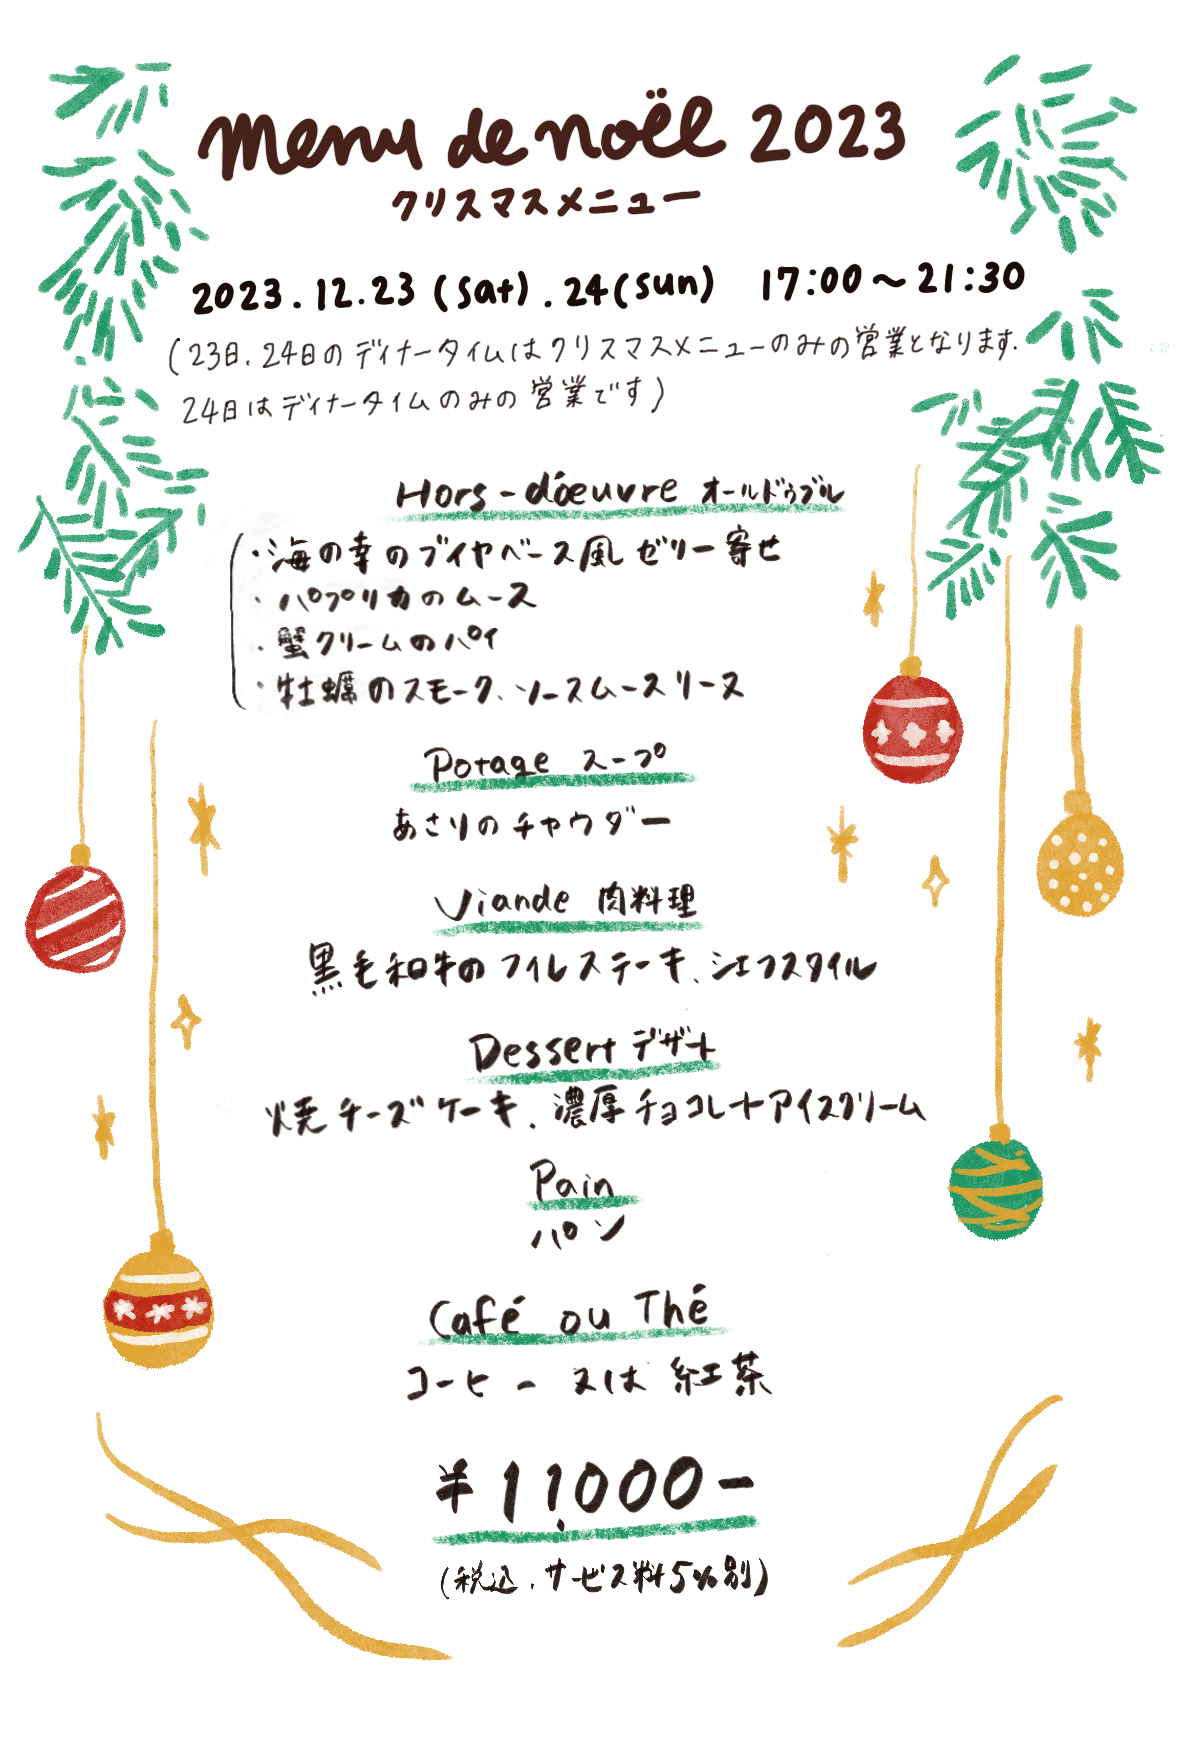 Menu de noël 2023
クリスマスメニュー
2023.12.23 (sat).24(sun) 17:00～21:30
(23日.24日のディナータイムはクリスマスメニューのみの営業となります.
24日はディナータイムのみの営業です)
Hors-d'oeuvre オールドゥブル
・海の幸のブイヤベース風ゼリー寄せ
・パプリカのムース
・蟹クリームのパイ
・牡蠣のスモーク、ソースムースリーヌ
Potage スープ
あさりのチャウダー
Viande 肉料理
黒毛和牛のフィレステーキ、シェフスタイル
Dessert デザート
焼チーズケーキ、濃厚チョコレートアイスクリーム
Pain
パン
Café ou Thé
コーヒー又は紅茶
¥11,000-
(税込.サービス料5%別)